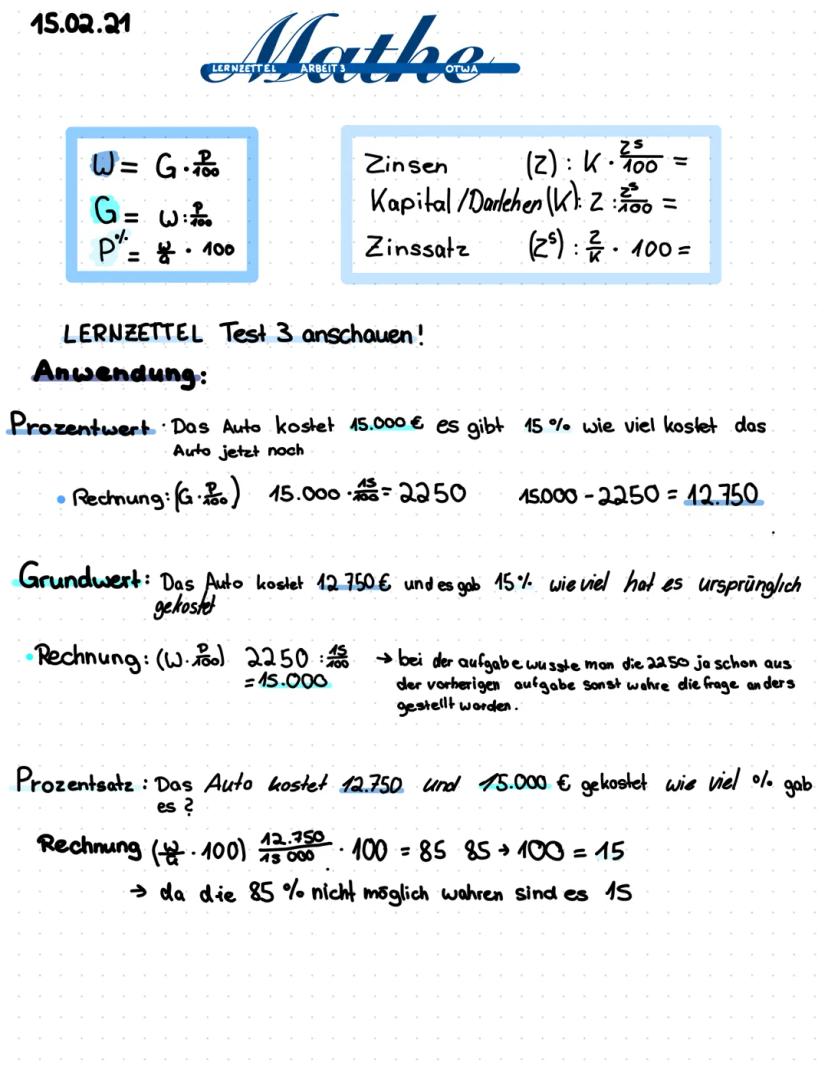 15.02.21
Mathe
LERNZETTEL ARBEIT 3 OTWA
W = G · P/100
G = W : P/100
P% = W/G · 100
Zinsen (Z) : K · Zs/100 =
Kapital/Darlehen (K): Z : Zs/100 =
Zinssatz (Zs) : Z/K · 100 =
LERNZETTEL Test 3 anschauen!
Anwendung:
Prozentwert · Das Auto kostet 15.000 € es gibt 15 % wie viel kostet das
Auto jetzt noch
• Rechnung: (G · P/100) 15.000 · 15/100 = 2250 15.000 - 2250 = 12.750
Grundwert: Das Auto kostet 12 750 € und es gab 15 % wie viel hat es ursprünglich
gekostet
• Rechnung: (W · P/100) 2250 : 15/100 → bei der aufgabe wusste man die 2250 ja schon aus
= 15.000 der vorherigen aufgabe sonst wahre die frage anders
gestellt worden.
Prozentsatz : Das Auto kostet 12.750 und 15.000 € gekostet wie viel % gab
es ?
Rechnung (W/G · 100) 12.750/15 000 · 100 = 85 85 → 100 = 15
→ da die 85 % nicht möglich wahren sind es 15